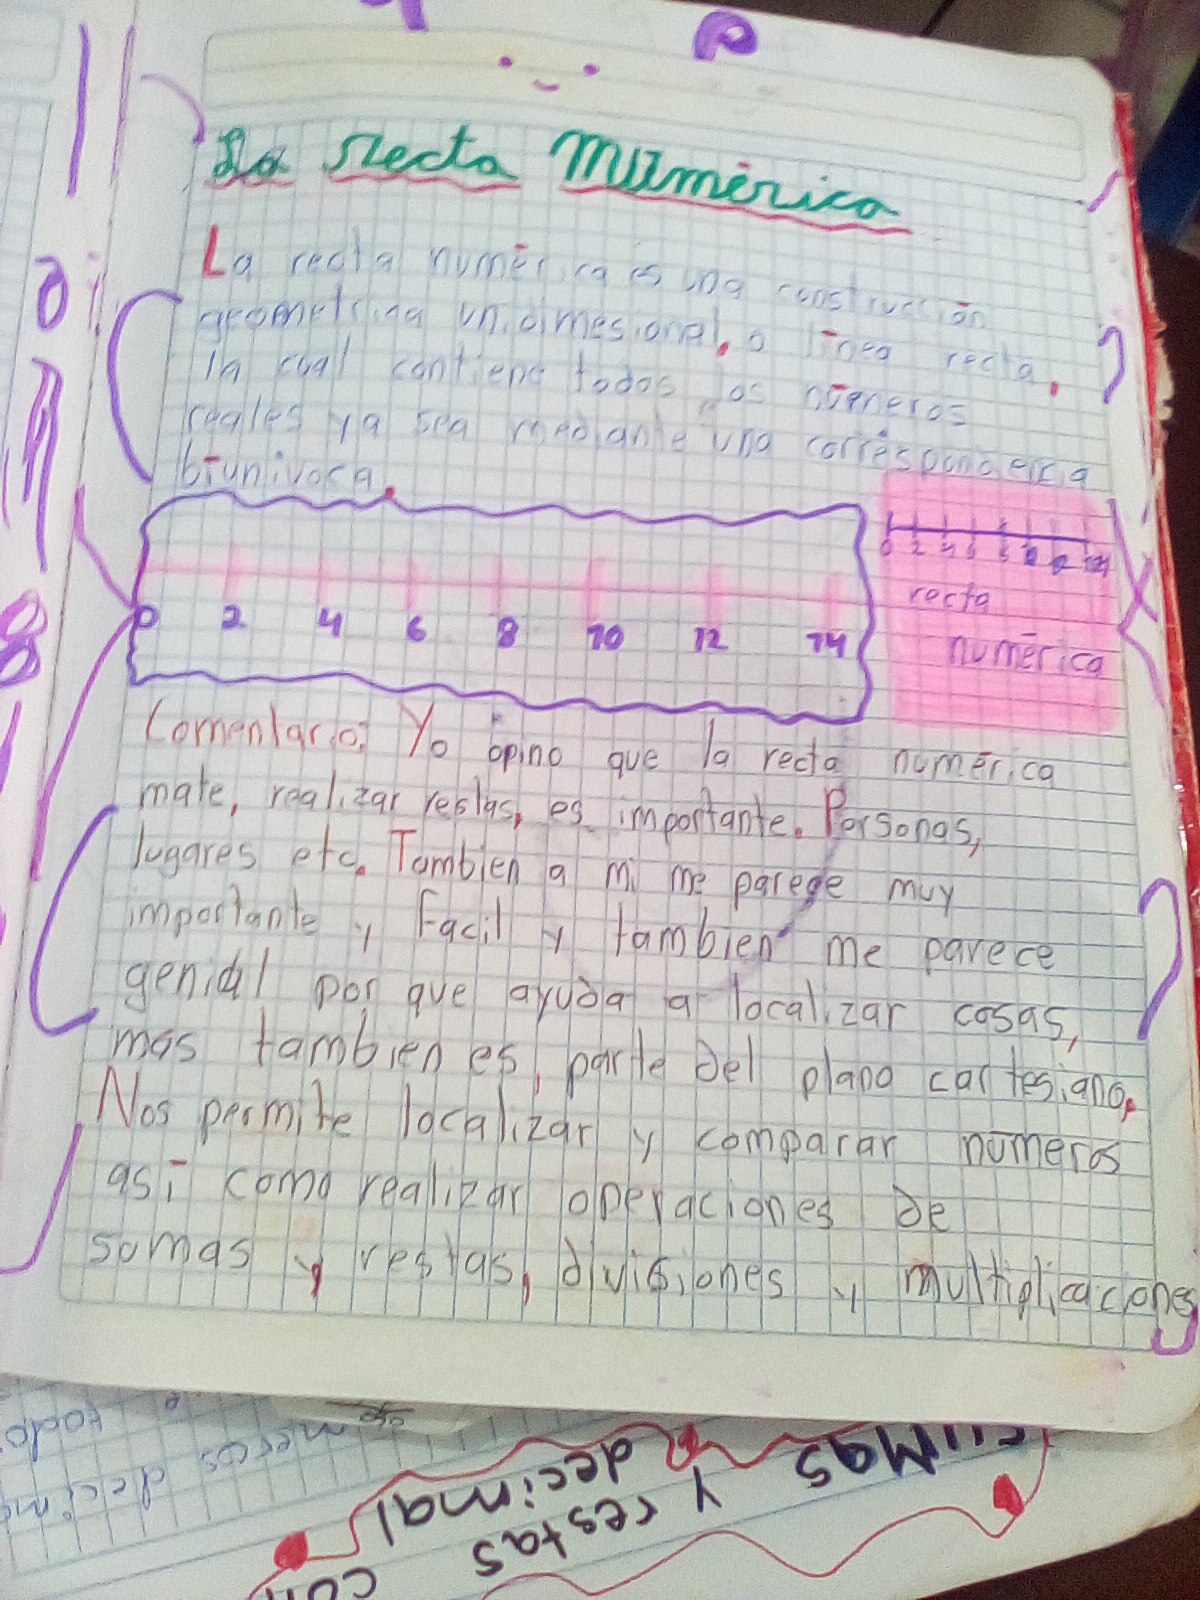 La recta numérica
La recta numérica es una construcción
geometrica unidimesional, o línea recta.
la cual contiene todos los números
reales ya sea mediante una correspondencia
biunivoca.
0 2 4 6 8 10 12 14
0 2 4 6 8 10 12 14
recta
numérica
Comentario: Yo opino que la recta numérica
mate, realizar restas, es importante. Personas,
lugares etc. Tambien a mi me parege muy
importante y Facil y tambien me parece
genial por que ayuda a localizar cosas,
mas tambien es, parte del plano cartesiano.
Nos permite localizar y comparar números
así como realizar operaciones de
somas y restas, divisiones y multiplicaciones
sumas
y restas
decimal
con
todo
meros decim